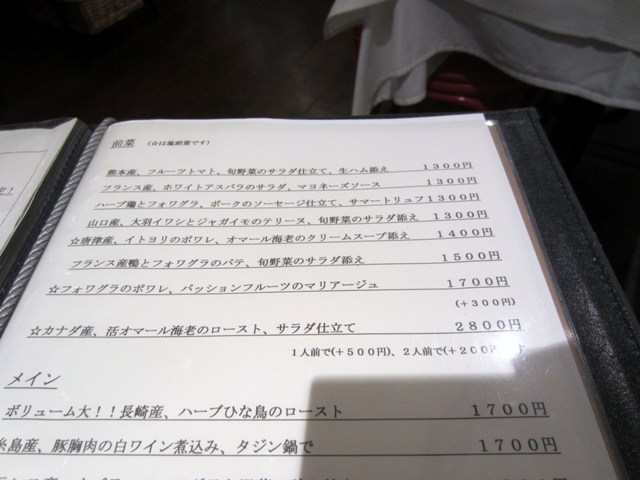 前菜 (☆は温前菜です)
熊本産、フルーツトマト、旬野菜のサラダ仕立て、生ハム添え 1300円
フランス産、ホワイトアスパラのサラダ、マヨネーズソース 1300円
ハーブ鶏とフォワグラ、ポークのソーセージ仕立て、サマートリュフ1300円
山口産、大羽イワシとジャガイモのテリーヌ、旬野菜のサラダ添え 1300円
☆唐津産、イトヨリのポワレ、オマール海老のクリームスープ添え 1400円
フランス産鴨とフォワグラのパテ、旬野菜のサラダ添え 1500円
☆フォワグラのポワレ、パッションフルーツのマリアージュ 1700円
(+300円)
☆カナダ産、活オマール海老のロースト、サラダ仕立て 2800円
1人前で(+500円)、2人前で(+200円)
メイン
ボリューム大!!長崎産、ハーブひな鳥のロースト 1700円
糸島産、豚胸肉の白ワイン煮込み、タジン鍋で 1700円